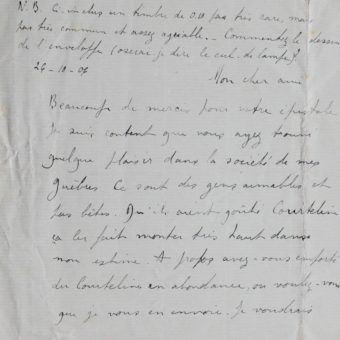 N.B. Ci-inclus un timbre de 0.10 pas très rare, mais
pas très commun et assez agréable. — Commentez le dessin
de l'enveloppe (oserai-je dire le cul de lampe?)
26-10-06
Mon cher ami
Beaucoup de mercis pour votre épistole
Je suis content que vous ayez trouvé
quelque plaisir dans la société de mes
Guêbres Ce sont des gens aimables et
pas bêtes. Qu'ils aient goûté Courteline
ça les fait monter très haut dans
mon estime. A propos avez-vous emporté
du Courteline en abondance, ou voulez-vous
que je vous en envoie. Je voudrais